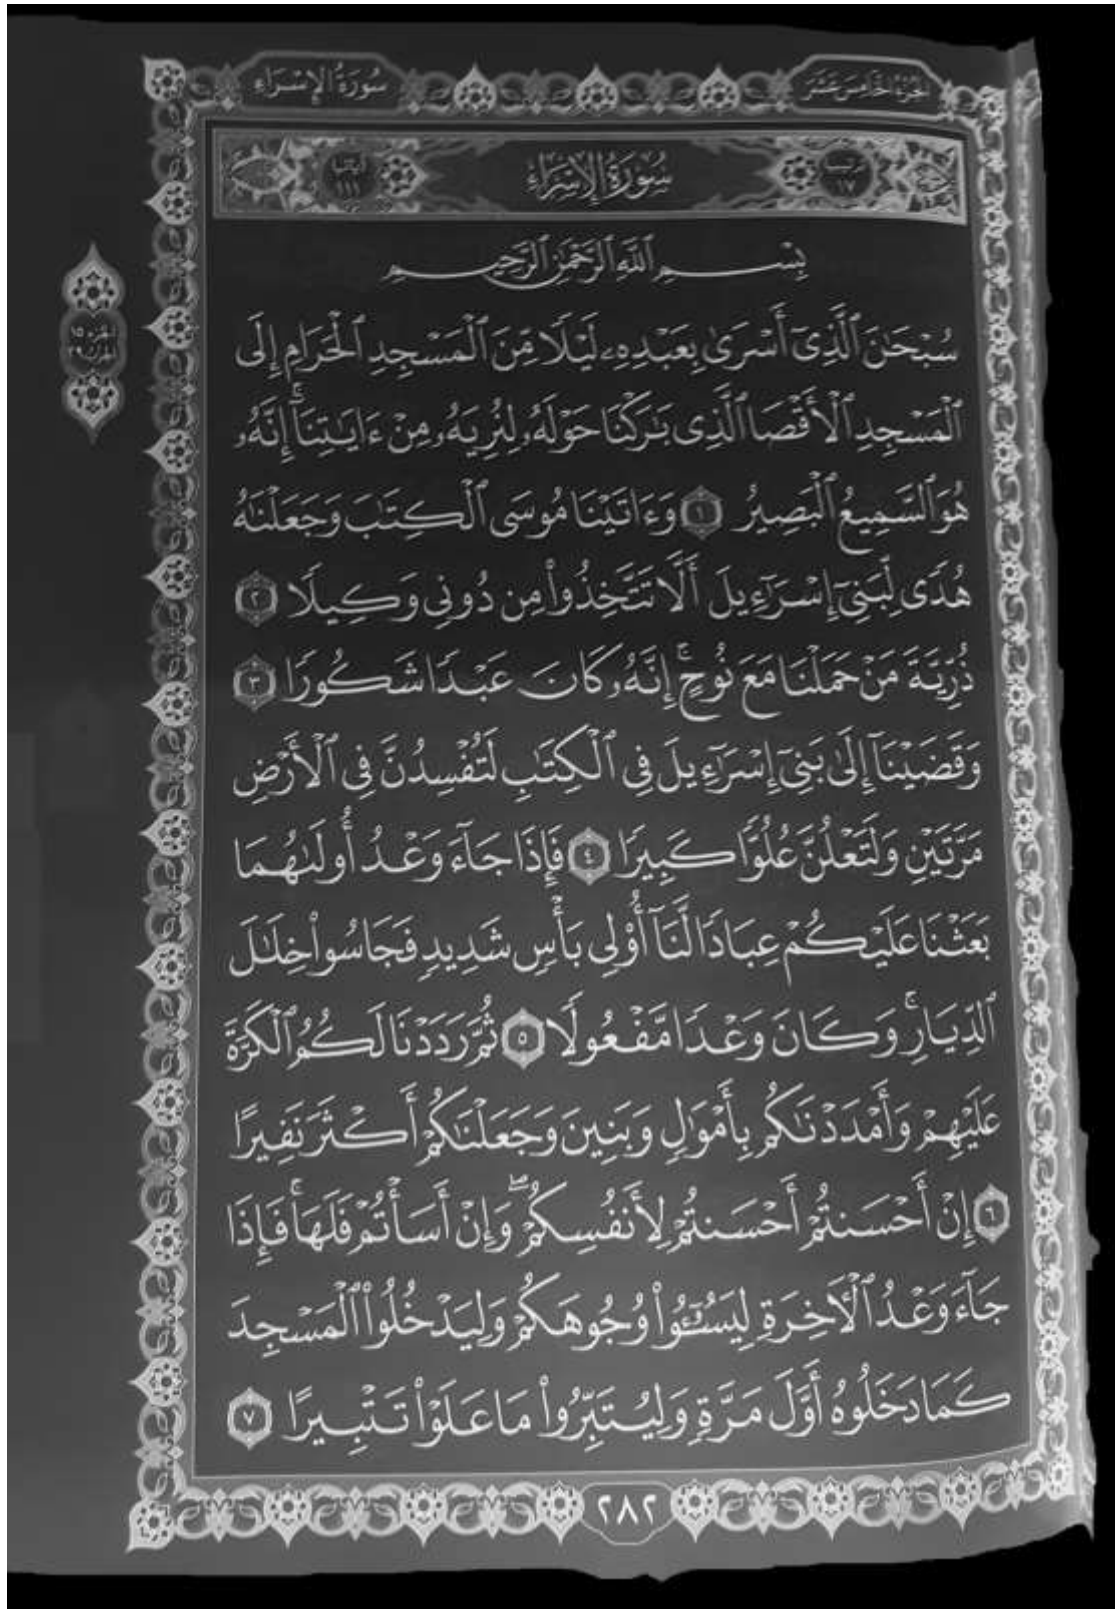 الجزء الخامس عشر
سورة الإسراء
ترتيبها ١٧
سُورَةُ الإِسْرَاءِ
آياتها ١١١
بِسْمِ ٱللَّهِ ٱلرَّحْمَٰنِ ٱلرَّحِيمِ
سُبْحَٰنَ ٱلَّذِىٓ أَسْرَىٰ بِعَبْدِهِۦ لَيْلًا مِّنَ ٱلْمَسْجِدِ ٱلْحَرَامِ إِلَى
ٱلْمَسْجِدِ ٱلْأَقْصَا ٱلَّذِى بَٰرَكْنَا حَوْلَهُۥ لِنُرِيَهُۥ مِنْ ءَايَٰتِنَآ ۚ إِنَّهُۥ
هُوَ ٱلسَّمِيعُ ٱلْبَصِيرُ ١ وَءَاتَيْنَا مُوسَى ٱلْكِتَٰبَ وَجَعَلْنَٰهُ
هُدًى لِّبَنِىٓ إِسْرَٰٓءِيلَ أَلَّا تَتَّخِذُوا۟ مِن دُونِى وَكِيلًا ٢
ذُرِّيَّةَ مَنْ حَمَلْنَا مَعَ نُوحٍ ۚ إِنَّهُۥ كَانَ عَبْدًا شَكُورًا ٣
وَقَضَيْنَآ إِلَىٰ بَنِىٓ إِسْرَٰٓءِيلَ فِى ٱلْكِتَٰبِ لَتُفْسِدُنَّ فِى ٱلْأَرْضِ
مَرَّتَيْنِ وَلَتَعْلُنَّ عُلُوًّا كَبِيرًا ٤ فَإِذَا جَآءَ وَعْدُ أُولَىٰهُمَا
بَعَثْنَا عَلَيْكُمْ عِبَادًا لَّنَآ أُو۟لِى بَأْسٍ شَدِيدٍ فَجَاسُوا۟ خِلَٰلَ
ٱلدِّيَارِ ۚ وَكَانَ وَعْدًا مَّفْعُولًا ٥ ثُمَّ رَدَدْنَا لَكُمُ ٱلْكَرَّةَ
عَلَيْهِمْ وَأَمْدَدْنَٰكُم بِأَمْوَٰلٍ وَبَنِينَ وَجَعَلْنَٰكُمْ أَكْثَرَ نَفِيرًا
٦ إِنْ أَحْسَنتُمْ أَحْسَنتُمْ لِأَنفُسِكُمْ ۖ وَإِنْ أَسَأْتُمْ فَلَهَا ۚ فَإِذَا
جَآءَ وَعْدُ ٱلْءَاخِرَةِ لِيَسُۥٓـُٔوا۟ وُجُوهَكُمْ وَلِيَدْخُلُوا۟ ٱلْمَسْجِدَ
كَمَا دَخَلُوهُ أَوَّلَ مَرَّةٍ وَلِيُتَبِّرُوا۟ مَا عَلَوْا۟ تَتْبِيرًا ٧
الجزء ١٥
الحزب ٢٩
٢٨٢